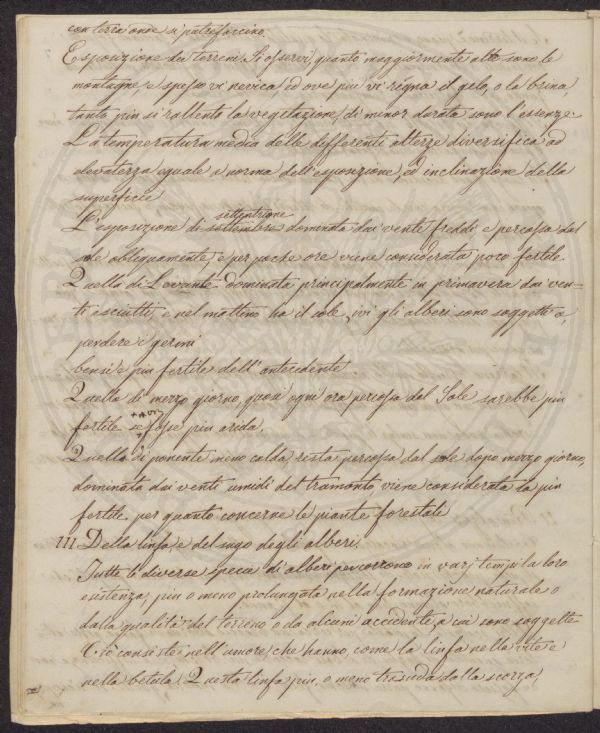 con terra onde si putrefaccino.
Esposizione dei terreni. Si osservi, quanto maggiormente alte sono le
montagne, e spesso vi nevica, ed ove più vi regna il gelo, o la brina,
tanto più si rallenta la vegetazione, di minor durata sono l'essenze.
La temperatura media delle differenti altezze diversifica ad
elevatezza eguale a norma dell'esposizione, ed inclinazione della
superficie
settentrione
L'esposizione di settembre dominata dai venti freddi e percossa dal
sole obliquamente, e per poche ore viene considerata poco fertile.
Quella di Levante dominata principalmente in primavera dai ven-
ti asciutti, e nel mattino ha il sole, ivi gli alberi sono soggetti a,
perdere i germi
bensì è più fertile dell'antecedente
Quella di mezzo giorno, quasi ogni ora percossa dal Sole sarebbe più
non
fertile se fosse più arida.
Quella di ponente meno calda, resta percossa dal sole dopo mezzo giorno,
dominata dai venti umidi del tramonto viene considerata la più
fertile per quanto concerne le piante forestali
III Della linfa, e del sugo degli alberi.
Tutte le diverse specie di alberi percorrono in varj tempi la loro
esistenza, più o meno prolungata nella formazione naturale o
dalla qualità del terreno o da alcuni accidenti, a cui sono soggette
Ciò consiste nell'umore, che hanno, come la linfa nella vite e
nella betula. Questa linfa più, o meno trasuda dalla scorza,